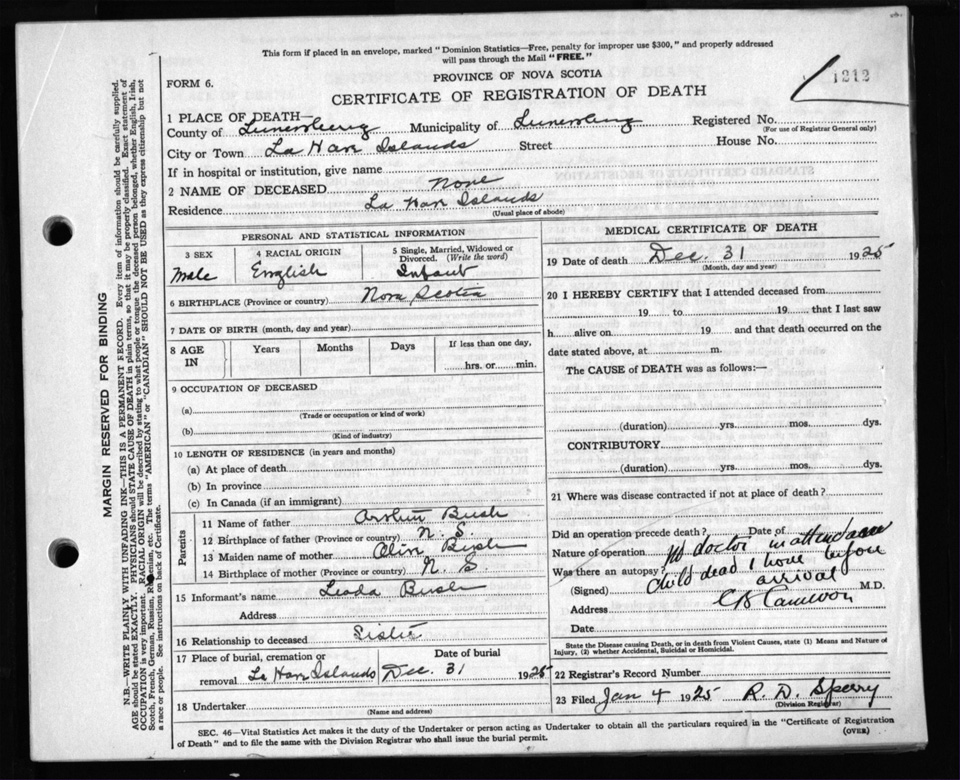 This form if placed in an envelope, marked "Dominion Statistics—Free, penalty for improper use $300," and properly addressed
will pass through the Mail "FREE."
PROVINCE OF NOVA SCOTIA
1212
FORM 6.
CERTIFICATE OF REGISTRATION OF DEATH
1 PLACE OF DEATH—
County of Lunenburg Municipality of Lunenburg Registered No.
(For use of Registrar General only)
City or Town La Have Islands Street House No.
If in hospital or institution, give name
2 NAME OF DECEASED None
Residence La Have Islands
(Usual place of abode)
PERSONAL AND STATISTICAL INFORMATION
3 SEX 4 RACIAL ORIGIN 5 Single, Married, Widowed or Divorced. (Write the word)
Male English Infant
6 BIRTHPLACE (Province or country) Nova Scotia
7 DATE OF BIRTH (month, day and year)
8 AGE IN Years Months Days If less than one day,
hrs. or min.
9 OCCUPATION OF DECEASED
(a)
(Trade or occupation or kind of work)
(b)
(Kind of industry)
10 LENGTH OF RESIDENCE (in years and months)
(a) At place of death
(b) In province
(c) In Canada (if an immigrant)
Parents
11 Name of father Bush
12 Birthplace of father (Province or country) N. S.
13 Maiden name of mother Bush
14 Birthplace of mother (Province or country) N. S.
15 Informant's name Bush
Address
16 Relationship to deceased Sister
17 Place of burial, cremation or Date of burial
removal La Have Islands Dec. 31 1925
18 Undertaker
(Name and address)
MEDICAL CERTIFICATE OF DEATH
19 Date of death Dec. 31 1925
(Month, day and year)
20 I HEREBY CERTIFY that I attended deceased from
19 to 19 that I last saw
h alive on 19 and that death occurred on the
date stated above, at m.
The CAUSE of DEATH was as follows:—
(duration) yrs. mos. dys.
CONTRIBUTORY
(duration) yrs. mos. dys.
21 Where was disease contracted if not at place of death?
Did an operation precede death? Date of
Nature of operation No doctor in attendance
Was there an autopsy? child dead before
(Signed) arrival M.D.
Address Cameron
Date
State the Disease causing Death, or in death from Violent Causes, state (1) Means and Nature of
Injury, (2) whether Accidental, Suicidal or Homicidal.
22 Registrar's Record Number
23 Filed Jan 4 1925 R. D. Sperry
(Division Registrar)
SEC. 46—Vital Statistics Act makes it the duty of the Undertaker or person acting as Undertaker to obtain all the particulars required in the "Certificate of Registration
of Death" and to file the same with the Division Registrar who shall issue the burial permit.
(OVER)
MARGIN RESERVED FOR BINDING
N.B.—WRITE PLAINLY WITH UNFADING INK—THIS IS A PERMANENT RECORD. Every item of information should be carefully supplied.
AGE should be stated EXACTLY. PHYSICIANS should STATE CAUSE OF DEATH in plain terms, so that it may be properly classified. Exact statement of
OCCUPATION is very important. RACIAL ORIGIN will be described by stating to what people or tongue the deceased person belonged, whether English, Irish,
Scotch, French, German, Russian, Ruthenian, etc. The terms "AMERICAN" or "CANADIAN" SHOULD NOT BE USED as they express citizenship but not
a race or people. See instructions on back of Certificate.